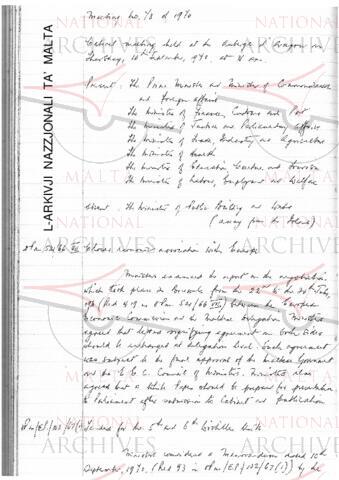 L-ARKIVJI NAZZJONALI TA' MALTA
NATIONAL ARCHIVES MALTA
Meeting No. 73 of 1970
Cabinet meeting held at the Auberge d'Aragon on
Thursday, 10th September, 1970, at
Present: The Prime Minister and Minister of Commonwealth
and Foreign Affairs
The Minister of Finance, Customs and Port
The Minister of Justice and Parliamentary Affairs
The Minister of Trade, Industry, and Agriculture
The Minister of Health
The Minister of Education, Culture, and Tourism
The Minister of Labour, Employment and Welfare
Absent: The Minister of Public Building and Works
(away from the Island)
Closer economic association with Europe
Ministers examined the report on the negotiations
which took place in Brussels from the 22nd to the 24th July,
1970 between the European
Economic Commission and the Maltese delegation. Ministers
agreed that letters signifying agreement on both sides
should be exchanged at delegation level. Such agreement
was subject to the final approval of the Maltese Government
and the E.E.C. Council of Ministers. Ministers also
agreed that a White Paper should be prepared for presentation
to Parliament after submission to Cabinet and publication.
Tenders for the 5th and 6th
Ministers considered a Memorandum dated 10th
September, 1970, (Red 93 in by the